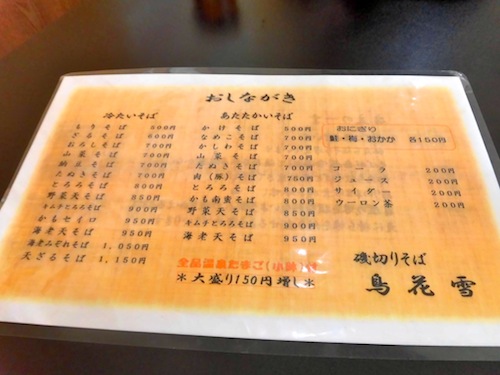 おしながき
冷たいそば
もりそば 500円
ざるそば 600円
おろしそば 700円
山菜そば 700円
納豆そば 700円
たぬきそば 700円
とろろそば 800円
野菜天そば 850円
キムチとろろそば 900円
かもセイロ 950円
海老天そば 950円
海老みぞれそば 1,050円
天ざるそば 1,150円
あたたかいそば
かけそば 500円
なめこそば 700円
かしわそば 700円
山菜そば 700円
たぬきそば 700円
肉(豚)そば 750円
とろろそば 800円
かも南蛮そば 850円
野菜天そば 850円
キムチとろろそば 900円
海老天そば 950円
おにぎり
鮭・梅・おかか 各150円
コーラ 200円
ジュース 200円
サイダー 200円
ウーロン茶 200円
全品温泉たまご(小鉢)付
*大盛り150円増し*
磯切りそば
鳥花雪